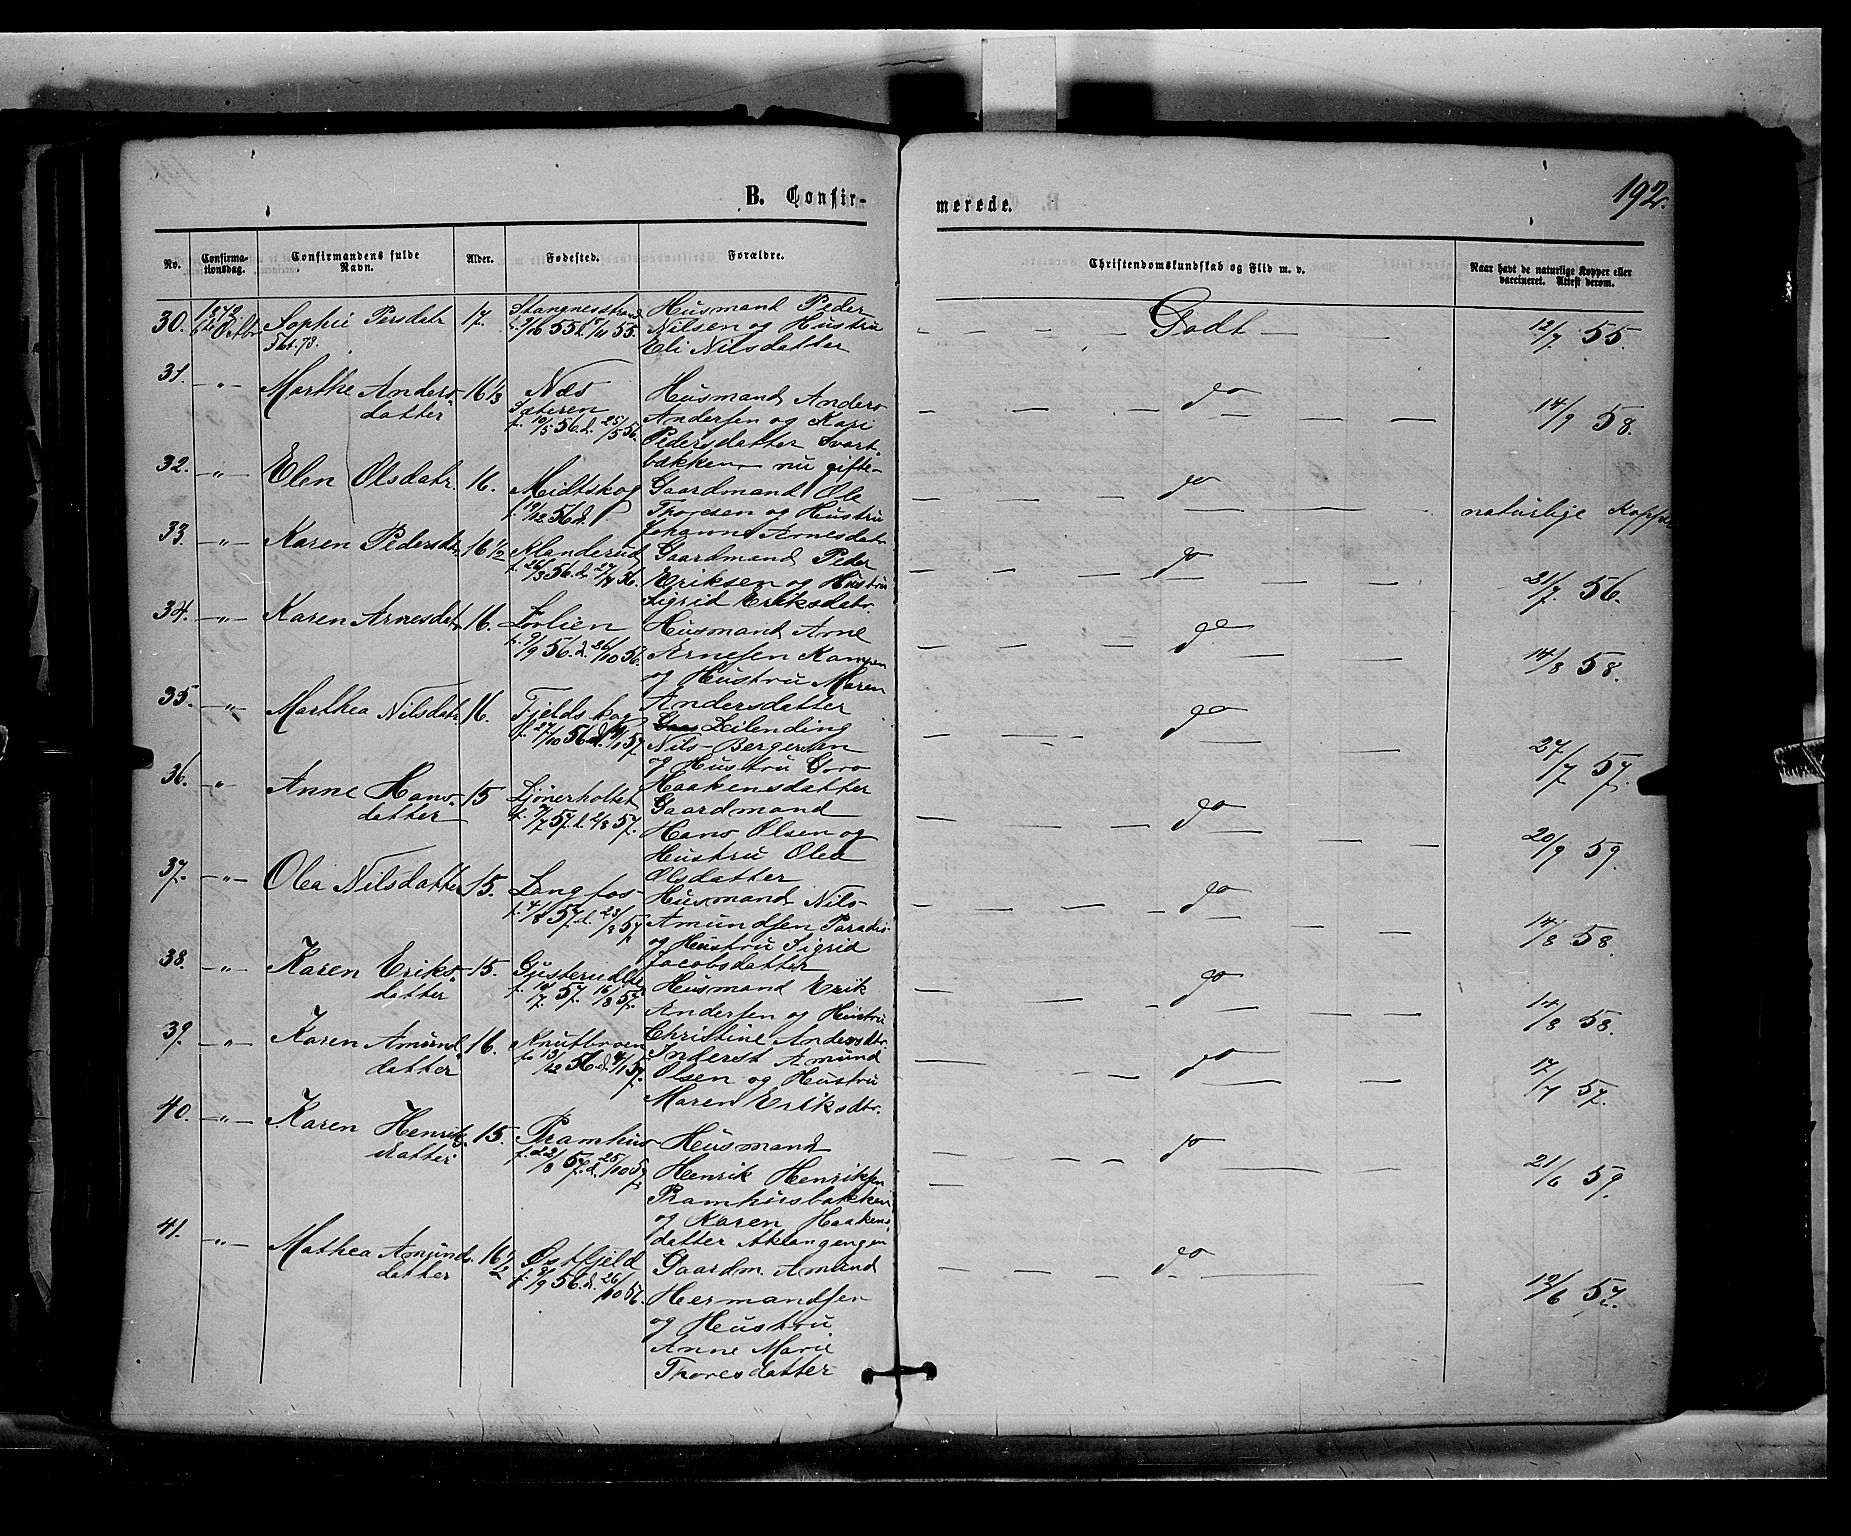 192.
B. Confir-
merede.
No.
Confirma-
tionsdag.
Confirmandens fulde
Navn.
Alder.
Fødested.
Forældre.
Christendomskundskab og Flid m. v.
Naar havt de naturlige Kopper eller
vaccineret. Attest derom.
30. 1872 Sophie Persdatr 17. Stangnesstrand Husmand Peder
6te Octbr 9/10 55 d. 55. Nilsen og Hustru
Eli Nilsdatter
Godt 12/7 55.
31. —„— Marthe Anders- 16 1/3 Næs Husmand Anders
datter Sæteren Andersen og Kari
f. 10/5 56 d. 25/5 56. Pedersdatter Svart-
bakken nu gifte
do 14/9 58.
32. —„— Elen Olsdatr. 16. Midtskog Gaardmand Ole
f. 19/12 56 d. Thoresen og Hustru
Johanne Arnesdatr
do naturlige Kopper
33. —„— Karen Pedersdtr 16 1/2 Klanderud Gaardmand Peder
f. 26/3 56. d. 27/4 56. Eriksen og Hustru
Sigrid Eriksdatr.
do 21/7 56.
34. —„— Karen Arnesdatr 16. Lovlien Husmand Arne
f. 9/9 56. d. 26/10 56. Arnesen Kampen
og Hustru Maren
Andersdatter
do 14/8 58.
35. —„— Marthea Nilsdatr 16. Fjeldskog Leilending
f. 27/10 56 d. 4/1 57. Nils Bergersen
og Hustru Goro
Haakensdatter
do 27/7 57.
36. „ Anne Hans- 15 Ljønerholtet Gaardmand
datter f. 9/7 57. d. 2/8 57. Hans Olsen og
Hustru Olea
Olsdatter
do 20/9 59.
37. —„— Olea Nilsdatter 15. Langfos Husmand Nils
f. 4/8 57. d. 23/8 57. Amundsen Paradis
og Hustru Sigrid
Jacobsdatter
do 14/8 58.
38. —„— Karen Eriks- 15. Husmand Erik
datter f. 18/7. 57. 16/8 57. Andersen og Hustru
Christine Andersdtr.
do 14/8 58.
39. —„— Karen Amund- 16. Knutbroen Inderst Amund
datter f. 13/12 56 d. 4/1 57. Olsen og Hustru
Maren Eriksdtr.
do 17/7 57.
40. —„— Karen Henrik- 15. Pramhus Husmand
datter f. 22/8 57. d. 25/10 57. Henrik Henriksen
Pramhusbakken
og Karen Haakens-
datter Aklangengen
do 21/6 59.
41. —„— Mathea Amunds- 16 1/2 Østfjeld Gaardm. Amund
datter f. 8/9 56. d. 26/10 56. Hermandsen
og Hustru
Anne Marie
Thoresdatter
do 12/6 57.